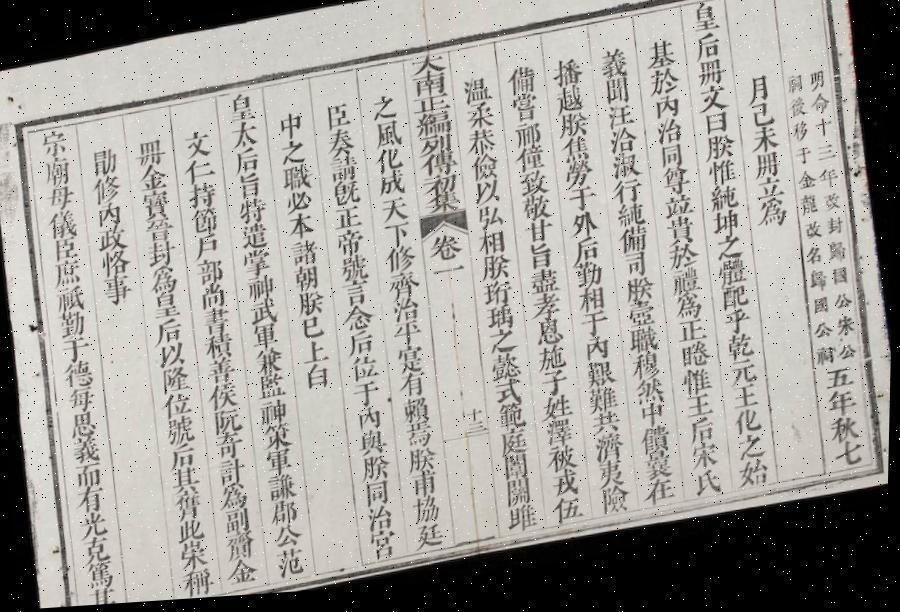 明命十三年改封歸國公宋公
祠後移于金龍改名歸國公祠
五年秋七
月己未冊立爲
皇后冊文曰朕惟純坤之體配乎乾元王化之始
基於內治同尊竝貴於禮爲正睠惟王后宋氏
義聞汪洽淑行純備司朕壼職穆然中饋曩在
播越朕焦勞于外后勤相于內艱難共濟夷險
備嘗邴僮致敬甘旨盡孝恩施子姓澤被戎伍
溫柔恭儉以弘相朕珩瑀之懿式範庭闈關雎
大南正編列傳初集 卷一 十三
之風化成天下修齊治平寔有賴焉朕甫協廷
臣奏請旣正帝號言念后位于內與朕同治宮
中之職必本諸朝朕已上白
皇太后旨特遣掌神武軍兼監神策軍謙郡公范
文仁持節戶部尚書積善侯阮奇計爲副齎金
冊金寶晉封爲皇后以隆位號后其膺此崇稱
勖修內政恪事
宗廟母儀臣庶祗勤于德每思義而有光克篤其